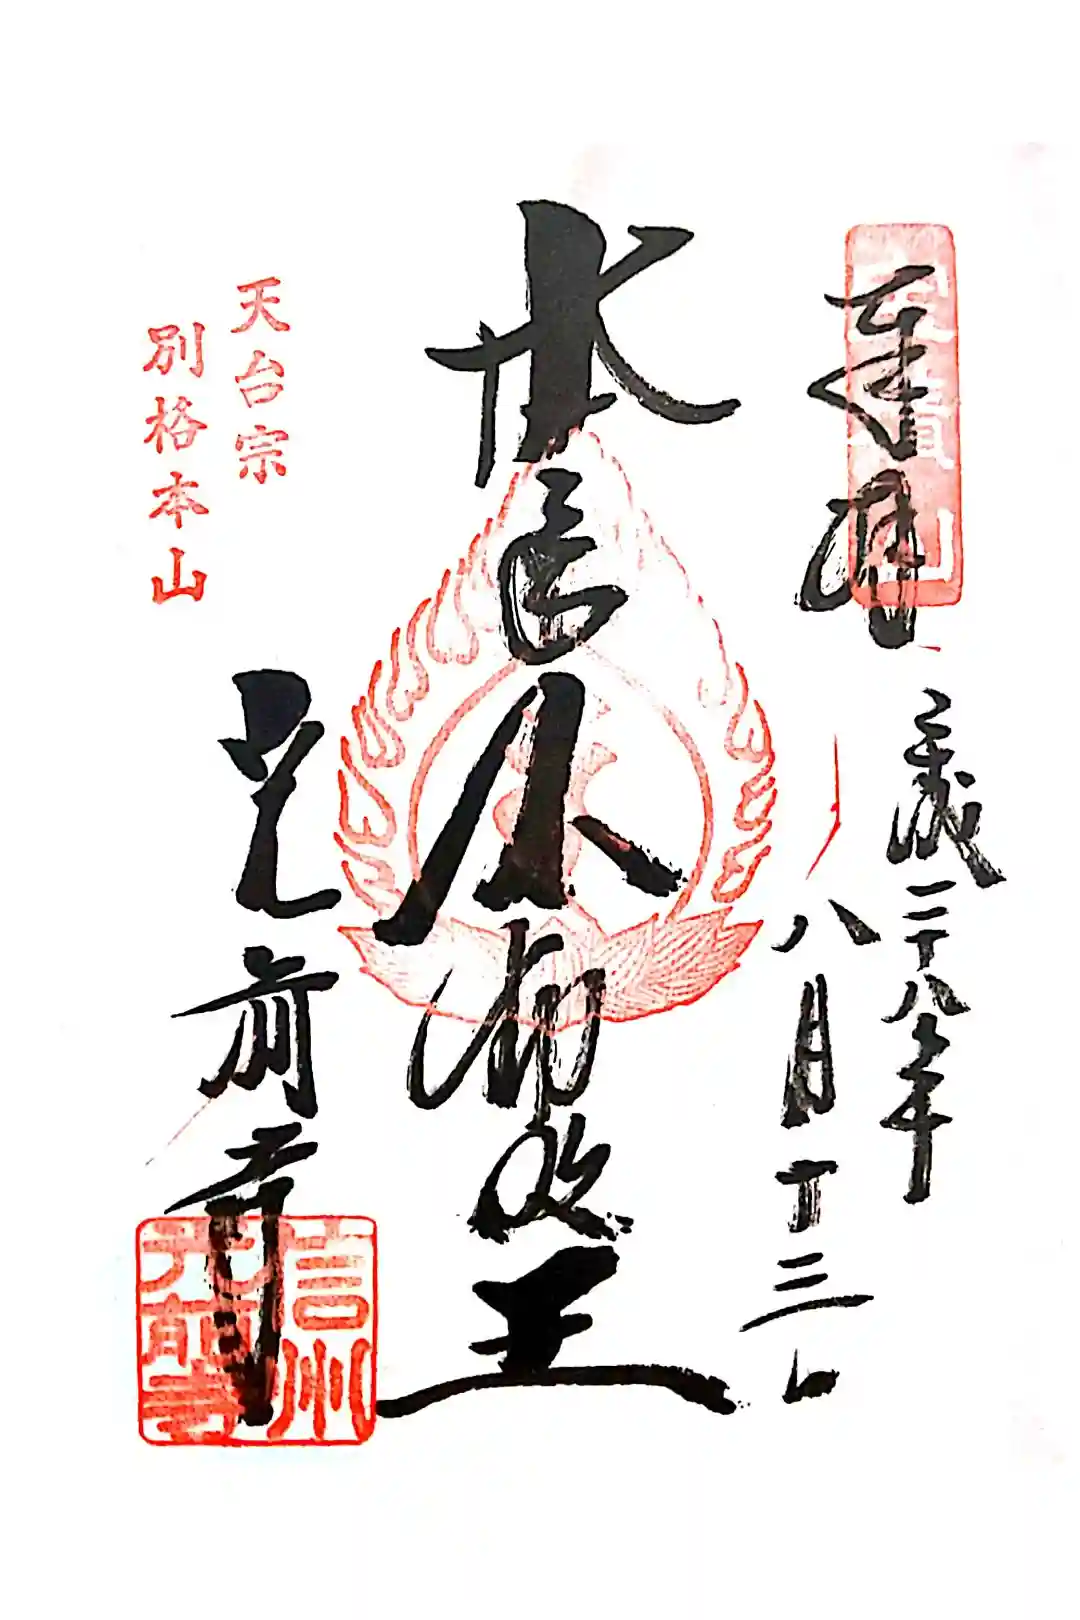 奉拝
宝積山
平成二十八年
八月十三日
本尊不動明王
天台宗
別格本山
光前寺
信州
光前寺